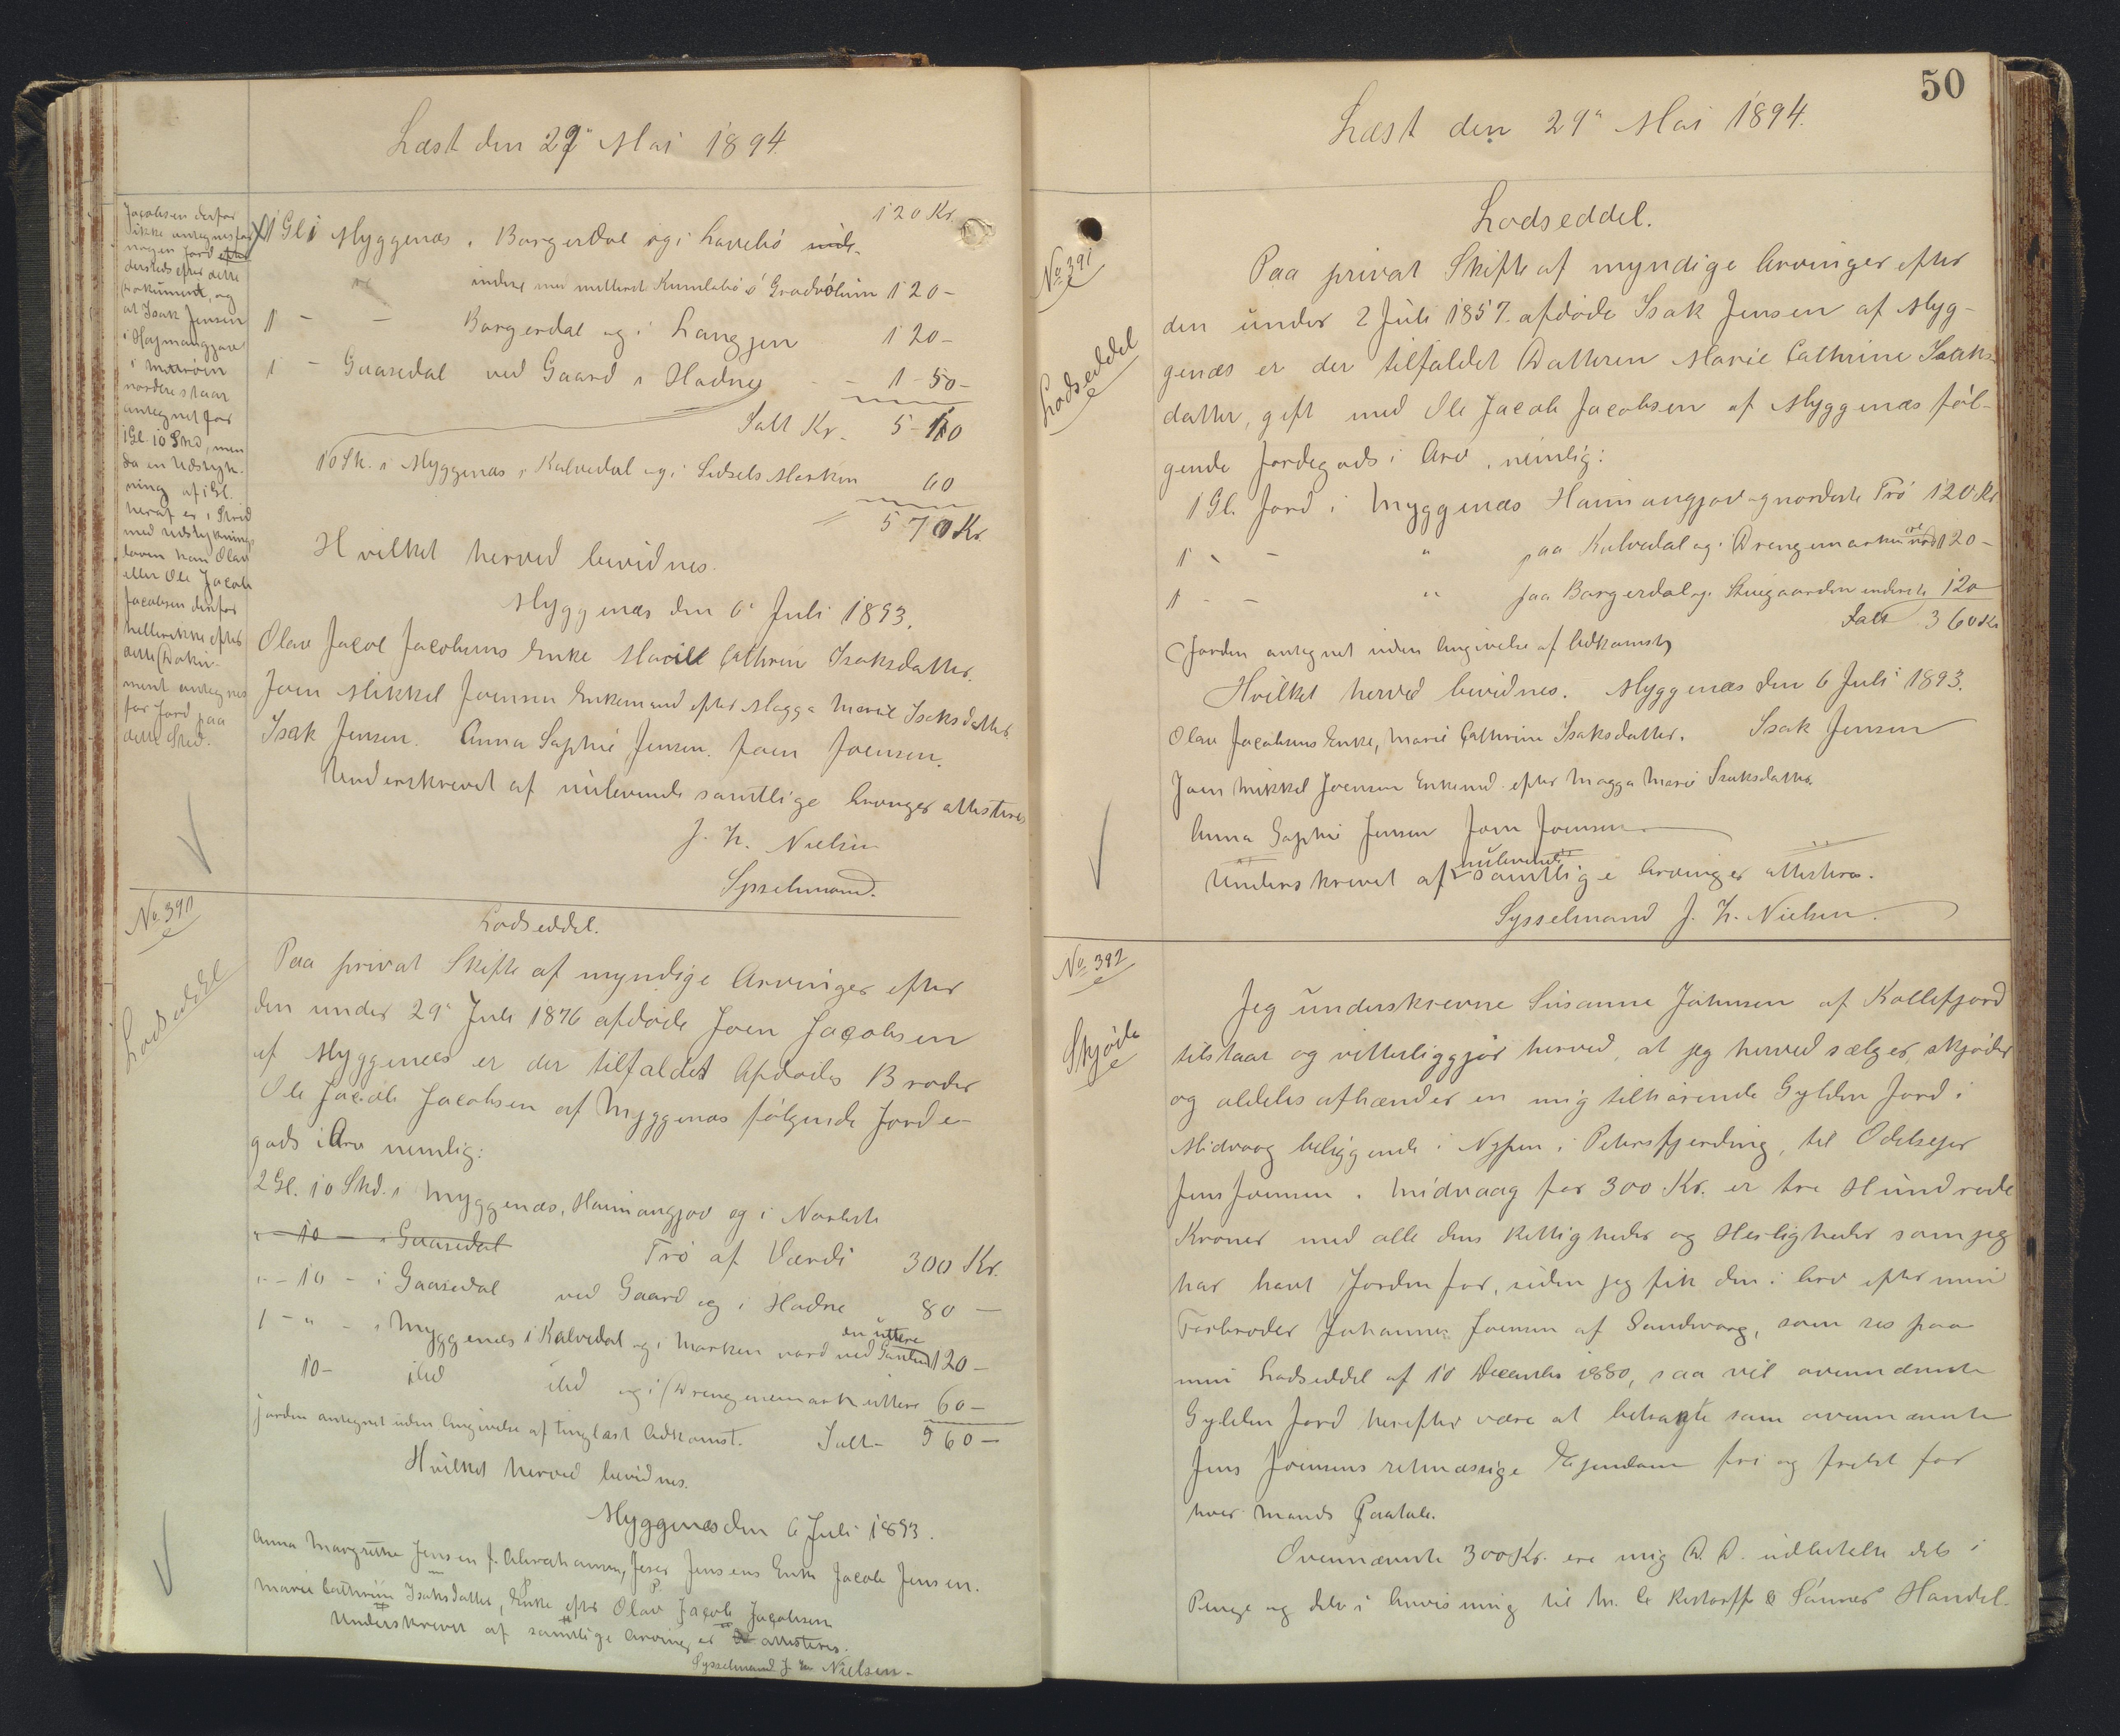 Læst den 29" Mai 1894.
Jacobsen derfor
ikke antegnes for
nogen Jord efter
dersteds efter dette
Dokument, og
at Isak Jensen
i Hajmangjare
i
nordere staar
antegnet for
1 Gl. 10 Skd, men
da en Udstyk-
ning af 1 Gl.
heraf er i Strid
med Udstyknings
loven kan Olav
eller Ole Jacob
Jacobsen derfor
heller ikke efter
dette Doku-
ment antegnes
for Jord paa
dette Sted.
120 Kr.
1 Gl i Myggenæs, Borgerdal og i
indere med mitterste 120 -
1 - - Borgerdal og i Langjen 120 -
1 - Gaasedal ved Gaard i Hadne - - 1 50 -
Ialt Kr. 5 10
10 Sk. i Myggenæs, Kalvedal og i Sidsels Marken 60
570 Kr.
Hvilket herved bevidnes.
Myggenæs den 6" Juli 1893.
Olav Jacob Jacobsens Enke Marie Cathrine Isaksdatter.
Joen Mikkel Joensen Enkemand efter Magga Marie Isaksdatter
Isak Jensen. Anna Sophie Jensen. Joen Joensen.
Underskrevet af nulevende samtlige Arvinger attesteres
J. H. Nielsen
Sysselmand.
No 390
Lodseddel
Lodseddel.
Paa privat Skifte af myndige Arvinger efter
den under 29" Juli 1876 afdøde Joen Jacobsen
af Myggenæs er der tilfaldet Afdødes Broder
Ole Jacob Jacobsen af Myggenæs følgende Jorde-
gods i Arv nemlig:
2 Gl. 10 Skd. i Myggenæs, Haimangjov og i Norderste
" - 10 - i Gaasedal
Trø af Værdi 300 Kr.
" - 10 - i Gaasedal ved Gaard og i Hadne 80 -
1 - " - i Myggenæs i Kalvedal og i Marken nord ved den uttere 120 -
10 - ibd ibd og i Drengenemark uttere 60 -
Jorden antegnet uden Angivelse af tinglæst Adkomst. Ialt - 560 -
Hvilket herved bevidnes.
Myggenæs den 6 Juli 1893.
Anna Margrethe Jensen f. Abrahamsen, Jens Jensens Enke Jacob Jensen.
Marie Cathrine Isaksdatter, Enke efter Olav Jacob Jacobsen
Underskrevet af samtlige Arvinger attesteres.
Sysselmand J. H. Nielsen -
50
Læst den 29" Mai 1894.
No 391
Lodseddel
Lodseddel.
Paa privat Skifte af myndige Arvinger efter
den under 2 Juli 1857. afdøde Isak Jensen af Myg-
genæs er der tilfaldet Datteren Marie Cathrine Isaks-
datter, gift med Ole Jacob Jacobsen af Myggenæs føl-
gende Jordegods i Arv, nemlig:
1 Gl. Jord i Myggenæs Haimangjov og norderste Trø 120 Kr
1 - - " paa Kalvedal og i Drengemarken 120 -
1 - - " paa Borgerdal og Stuigaarden inderste 120
Ialt 360 Kr
(Jorden antegnet uden Angivelse af Adkomst)
Hvilket herved bevidnes. Myggenæs den 6 Juli 1893.
Olav Jacobsens Enke, Marie Cathrine Isaksdatter. Isak Jensen
Joen Mikkel Joensen Enkemd. efter Magga Marie Isaksdatter
Anna Sophie Jensen Joen Joensen
Underskrevet af nulevende samtlige Arvinger attesteres.
Sysselmand J. H. Nielsen.
No 392
Skjøde
Jeg underskrevne Susanne Johnsen af Kollefjord
tilstaar og vitterliggjør herved, at jeg herved sælger, skjøder
og aldeles afhænder en mig tilhørende Gylden Jord i
Midvaag beliggende i Nypen i Petersfjerding, til Odelsejer
Jens Joensen i Midvaag for 300 Kr. er tre Hundrede
Kroner med alle dens Rettigheder og Herligheder som jeg
har havt Jorden for, siden jeg fik den i Arv efter min
Farbroder Johannes Joensen af Sandevaag, som ses paa
min Lodseddel af 10 December 1880, saa vil ovennævnte
Gylden Jord herefter være at betragte som ovennævnte
Jens Joensens retmæssige Ejendom fri og frelst for
hver Mands Paatale.
Ovennævnte 300 Kr. ere mig D. D. udbetalte dels i
Penge og dels i Anvisning til M. C Restorff & Sønner Handel.